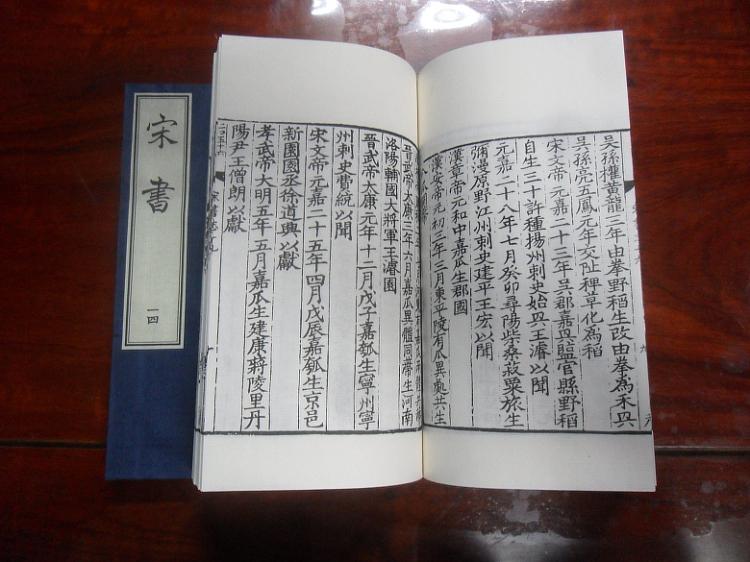 宋書
一四
吳孫權黃龍三年由拳野稻生改由拳為禾興
吳孫亮五鳳元年交阯稗草化為稻
宋文帝元嘉二十三年吳郡嘉興鹽官縣野稻
自生三十許種揚州刺史始興王濬以聞
元嘉二十八年七月癸卯尋陽柴桑菽粟旅生
彌漫原野江州刺史建平王宏以聞
漢章帝元和中嘉瓜生郡國
漢安帝元初三年三月東平陵有瓜異處共生
晉武帝太康三年六月嘉瓜異體同蔕生河南
洛陽輔國大將軍王濬園
晉武帝太康元年十二月戊子嘉瓠生寧州寧
州刺史費統以聞
宋文帝元嘉二十五年四月戊辰嘉瓠生京邑
新園園丞徐道興以獻
孝武帝大明五年五月嘉瓜生建康蔣陵里丹
陽尹王僧朗以獻